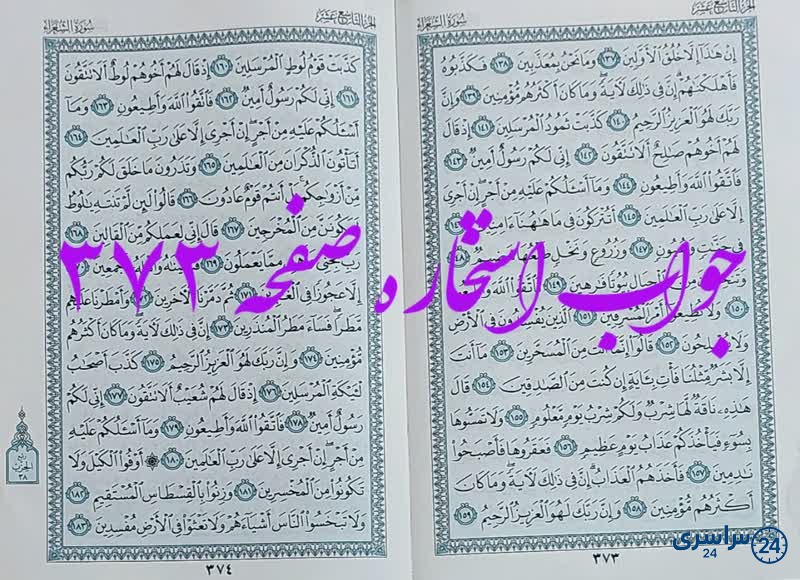 الجزء التاسع عشر سورة الشعراء
إِنْ هَٰذَا إِلَّا خُلُقُ الْأَوَّلِينَ ١٣٧ وَمَا نَحْنُ بِمُعَذَّبِينَ ١٣٨ فَكَذَّبُوهُ
فَأَهْلَكْنَاهُمْ إِنَّ فِي ذَٰلِكَ لَآيَةً وَمَا كَانَ أَكْثَرُهُمْ مُؤْمِنِينَ ١٣٩ وَإِنَّ
رَبَّكَ لَهُوَ الْعَزِيزُ الرَّحِيمُ ١٤٠ كَذَّبَتْ ثَمُودُ الْمُرْسَلِينَ ١٤١ إِذْ قَالَ
لَهُمْ أَخُوهُمْ صَالِحٌ أَلَا تَتَّقُونَ ١٤٢ إِنِّي لَكُمْ رَسُولٌ أَمِينٌ ١٤٣
فَاتَّقُوا اللَّهَ وَأَطِيعُونِ ١٤٤ وَمَا أَسْئَلُكُمْ عَلَيْهِ مِنْ أَجْرٍ إِنْ أَجْرِيَ
إِلَّا عَلَىٰ رَبِّ الْعَالَمِينَ ١٤٥ أَتُتْرَكُونَ فِي مَا هَاهُنَا آمِنِينَ
فِي جَنَّاتٍ وَعُيُونٍ ١٤٧ وَزُرُوعٍ وَنَخْلٍ طَلْعُهَا هَضِيمٌ ١٤٨
مِنَ الْجِبَالِ بُيُوتًا فَارِهِينَ ١٤٩ فَاتَّقُوا اللَّهَ
١٥٠ وَلَا تُطِيعُوا أَمْرَ الْمُسْرِفِينَ ١٥١ الَّذِينَ يُفْسِدُونَ فِي الْأَرْضِ
وَلَا يُصْلِحُونَ ١٥٢ قَالُوا إِنَّمَا أَنْتَ مِنَ الْمُسَحَّرِينَ ١٥٣ مَا أَنْتَ
إِلَّا بَشَرٌ مِثْلُنَا فَأْتِ بِآيَةٍ إِنْ كُنْتَ مِنَ الصَّادِقِينَ ١٥٤ قَالَ
هَٰذِهِ نَاقَةٌ لَهَا شِرْبٌ وَلَكُمْ شِرْبُ يَوْمٍ مَعْلُومٍ ١٥٥ وَلَا تَمَسُّوهَا
بِسُوءٍ فَيَأْخُذَكُمْ عَذَابُ يَوْمٍ عَظِيمٍ ١٥٦ فَعَقَرُوهَا فَأَصْبَحُوا
نَادِمِينَ ١٥٧ فَأَخَذَهُمُ الْعَذَابُ إِنَّ فِي ذَٰلِكَ لَآيَةً وَمَا كَانَ
أَكْثَرُهُمْ مُؤْمِنِينَ ١٥٨ وَإِنَّ رَبَّكَ لَهُوَ الْعَزِيزُ الرَّحِيمُ ١٥٩
٣٧٣
الجزء التاسع عشر سورة الشعراء
كَذَّبَتْ قَوْمُ لُوطٍ الْمُرْسَلِينَ ١٦٠ إِذْ قَالَ لَهُمْ أَخُوهُمْ لُوطٌ أَلَا تَتَّقُونَ
١٦١ إِنِّي لَكُمْ رَسُولٌ أَمِينٌ ١٦٢ فَاتَّقُوا اللَّهَ وَأَطِيعُونِ ١٦٣ وَمَا
أَسْئَلُكُمْ عَلَيْهِ مِنْ أَجْرٍ إِنْ أَجْرِيَ إِلَّا عَلَىٰ رَبِّ الْعَالَمِينَ ١٦٤
أَتَأْتُونَ الذُّكْرَانَ مِنَ الْعَالَمِينَ ١٦٥ وَتَذَرُونَ مَا خَلَقَ لَكُمْ رَبُّكُمْ
مِنْ أَزْوَاجِكُمْ بَلْ أَنْتُمْ قَوْمٌ عَادُونَ ١٦٦ قَالُوا لَئِنْ لَمْ تَنْتَهِ يَا لُوطُ
لَتَكُونَنَّ مِنَ الْمُخْرَجِينَ ١٦٧ قَالَ إِنِّي لِعَمَلِكُمْ مِنَ الْقَالِينَ ١٦٨
رَبِّ نَجِّنِي وَأَهْلِي مِمَّا يَعْمَلُونَ ١٦٩ فَنَجَّيْنَاهُ وَأَهْلَهُ أَجْمَعِينَ
إِلَّا عَجُوزًا فِي الْغَابِرِينَ ١٧١ ثُمَّ دَمَّرْنَا الْآخَرِينَ ١٧٢ وَأَمْطَرْنَا عَلَيْهِمْ
مَطَرًا فَسَاءَ مَطَرُ الْمُنْذَرِينَ ١٧٣ إِنَّ فِي ذَٰلِكَ لَآيَةً وَمَا كَانَ أَكْثَرُهُمْ
مُؤْمِنِينَ ١٧٤ وَإِنَّ رَبَّكَ لَهُوَ الْعَزِيزُ الرَّحِيمُ ١٧٥ كَذَّبَ أَصْحَابُ
لْئَيْكَةِ الْمُرْسَلِينَ ١٧٦ إِذْ قَالَ لَهُمْ شُعَيْبٌ أَلَا تَتَّقُونَ ١٧٧ إِنِّي لَكُمْ
رَسُولٌ أَمِينٌ ١٧٨ فَاتَّقُوا اللَّهَ وَأَطِيعُونِ ١٧٩ وَمَا أَسْئَلُكُمْ عَلَيْهِ
مِنْ أَجْرٍ إِنْ أَجْرِيَ إِلَّا عَلَىٰ رَبِّ الْعَالَمِينَ ١٨٠ أَوْفُوا الْكَيْلَ وَلَا
تَكُونُوا مِنَ الْمُخْسِرِينَ ١٨١ وَزِنُوا بِالْقِسْطَاسِ الْمُسْتَقِيمِ ١٨٢
وَلَا تَبْخَسُوا النَّاسَ أَشْيَاءَهُمْ وَلَا تَعْثَوْا فِي الْأَرْضِ مُفْسِدِينَ ١٨٣
٣٧٤
ربع
الحزب
٣٨
جواب استخاره صفحه ۳۷۳
سراسری
24
24